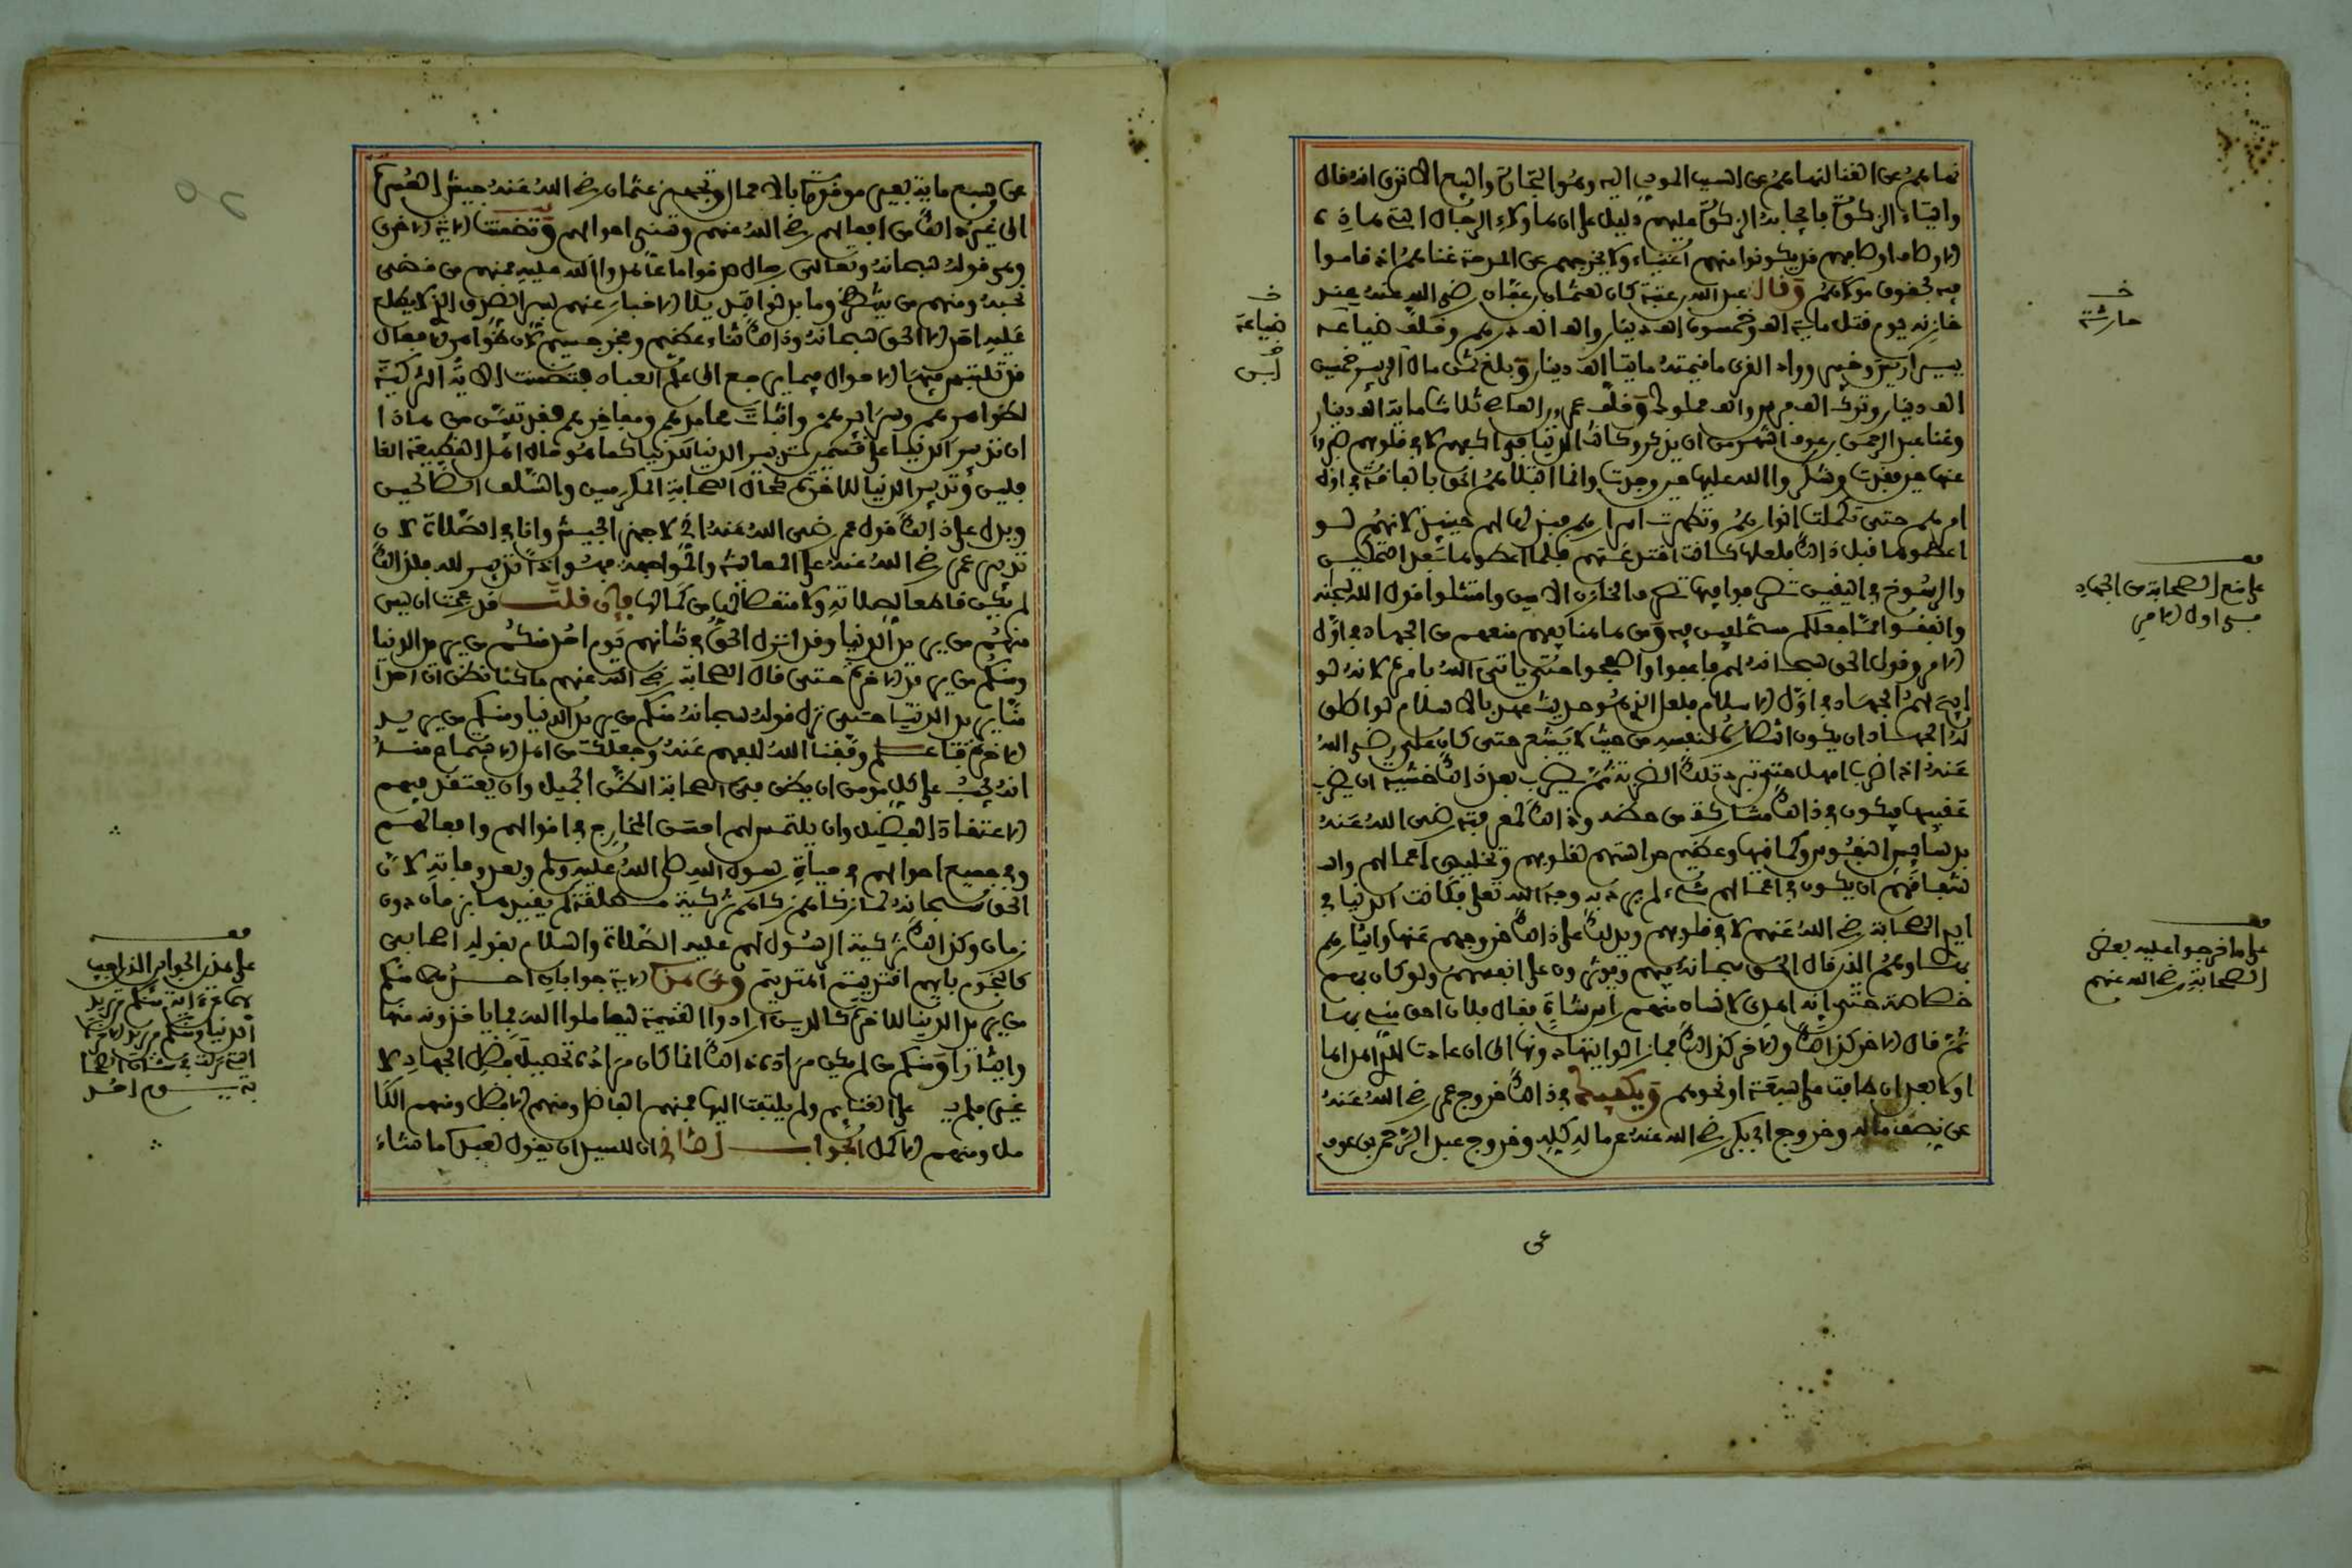 نهاهم عن الغنا لنهاهم عن السبب الموصل اليه وهو التجارة والبيع الا ترى انه قال
وايتاء الزكوة فايجابه الزكوة عليهم دليل على ان هاولاء الرجال الذين هاذه
الاوصاف اوصافهم قد يكونوا منهم اغنياء ولا يخرجهم عن المدحة غناهم اذ قاموا
فيه بحقوق مولاهم وقال عبد الله بن عتبة كان لعثمان بن عفان رضي الله عنه عند
خازنه يوم قتل ماية الف وخمسون الف دينار والف الف درهم وخلف ضياعه
بين اريس وخيبر ووادي القرى ما قيمته مايتا الف دينار وبلغ ثمن مال الزبير خمسين
الف دينار وترك الف فرس والف مملوك وخلف عمرو بن العاص ثلاثماية الف دينار
وغنا عبد الرحمن بن عوف اشهر من ان يذكر وكانت الدنيا في اكفهم لا في قلوبهم صبروا
عنها حين فقدت وشكروا الله عليها حين وجدت وانما ابتلاهم الحق بالفاقة في اول
امرهم حتى تكملت انوارهم وتطهرت اسرارهم فبذلها لهم حينئذ لانهم لو
اعطوها قبل ذالك فلعلها كانت اخذت منهم فلما اعطوها بعد التمكين
والرسوخ في اليقين تصرفوا فيها تصرف الخازن الامين وامتثلوا قول الله سبحانه
وانفقوا مما جعلكم مستخلفين فيه ومن هاهنا يفهم منعهم من الجهاد في اول
الامر وقول الحق سبحانه لهم فاعفوا واصفحوا حتى ياتي الله بامره لانه لو
ابيح لهم الجهاد في اول الاسلام فلعل الذي هو حديث عهد بالاسلام لو اطلق
له الجهاد ان يكون انتصاره لنفسه من حيث لا يشعر حتى كان علي رضي الله
عنه اذا ضرب امهل حتى تبرد تلك الضربة ثم يضرب بعد ذالك خشية ان يضرب
عقيبها فيكون في ذالك مشاركة من حظه وذالك لمعرفته رضي الله عنه
بدسايس النفوس وكماينها وعظيم حراستهم لقلوبهم وتخليص اعمالهم
اشفاقهم ان يكون في اعمالهم شيء لم يرد به وجه الله تعلى فكانت الدنيا في
ايدي الصحابة رضي الله عنهم لا في قلوبهم ويدلك على ذالك خروجهم عنها وايثارهم
بها وهم الذي قال الحق سبحانه فيهم ويوثرون على انفسهم ولو كان بهم
خصاصة حتى انه اهدى لانسان منهم راس شاة فقال فلان احق مني بها
ثم قال الاخر كذالك والاخر كذالك فما زالوا يتهادونها الى ان عادت للذي اهداها
اولا بعد ان طافت على سبعة او نحوهم ويكفيك في ذالك خروج عمر رضي الله عنه
عن نصف ماله وخروج ابي بكر رضي الله عنه عن ماله كله وخروج عبد الرحمن بن عوف
عن
خـ
حارثة
خـ
ضياعة
قف
على منع الصحابة من الجهاد
في اول الامر
قف
على ما خرجوا عليه بعض
الصحابة رضي الله عنهم
عن سبع ماية بعير موقورة بالاحمال وتجهيز عثمان رضي الله عنه جيش العسرة
الى غير ذالك من افعالهم رضي الله عنهم وسني احوالهم وتضمنت الاية الاخرى
وهي قوله سبحانه وتعالى رجال صدقوا ما عاهدوا الله عليه فمنهم من قضى
نحبه ومنهم من ينتظر وما بدلوا تبديلا الاخبار عنهم بسر الصدق الذي لا يطلع
عليه احد الا الحق سبحانه وذالك ثناء عظيم وفخر جسيم لان ظواهر الافعال
قد تلتبس فيها الاحوال فيما يرجع الى علم العباد فتضمنت الاية التزكية
لظواهرهم وسرايرهم واثبات محامدهم ومفاخرهم فقد تبين من هاذا
ان تدبير الدنيا على قسمين تدبير الدنيا للدنيا كما هو حال اهل القطيعة الغا
فلين وتدبير الدنيا للاخرة كحال الصحابة المكرمين والسلف الصالحين
ويدل على ذالك قول عمر رضي الله عنه اني لاجهز الجيش وانا في الصلاة لان
تدبير عمر رضي الله عنه على المعاينة والمواجهة فهو اذا تدبير لله فلذالك
لم يكن قاطعا لصلاته ولا منقصا لها من كمالها فان قلت قد زعمت ان ليس
منهم من يريد الدنيا وقد انزل الحق في شانهم يوم احد منكم من يريد الدنيا
ومنكم من يريد الاخرة حتى قال الصحابة رضي الله عنهم ما كنا نظن ان احدا
منا يريد الدنيا حتى نزل قوله سبحانه منكم من يريد الدنيا ومنكم من يريد
الاخرة فاعلم وفقنا الله للفهم عنه وجعلك من اهل الاستماع منه
انه يجب على كل مومن ان يظن في الصحابة الظن الجميل وان يعتقد فيهم
الاعتقاد الفضيل وان يلتمس لهم احسن المخارج في اقوالهم وافعالهم
وفي جميع احوالهم في حياة رسول الله صلى الله عليه وسلم وبعد وفاته لان
الحق سبحانه لما زكاهم زكاهم تزكية مطلقة لم يقيدها بزمان دون
زمان وكذالك تزكية الرسول لهم عليه الصلاة والسلام بقوله اصحابي
كالنجوم بايهم اقتديتم اهتديتم وعن هذه الاية جوابان احدهما منكم
من يريد الدنيا للاخرة كالذين ارادوا الغنيمة ليعاملوا الله بما ياخذونه منها
وايثارا ومنكم من لم يكن مراده ذالك انما كان مراده تحصيل فضل الجهاد لا
غير فلم يـ على الغنايم ولم يلتفت اليها فمنهم الفاضل ومنهم الافضل ومنهم الكا
مل ومنهم الاكمل الجواب الثاني ان للسيد ان يقول لعبده ما شاء
قف
على هذا الجواب الذي اجيب
الدنيا ومنكم من يريد الاخرة
بة يوم احد